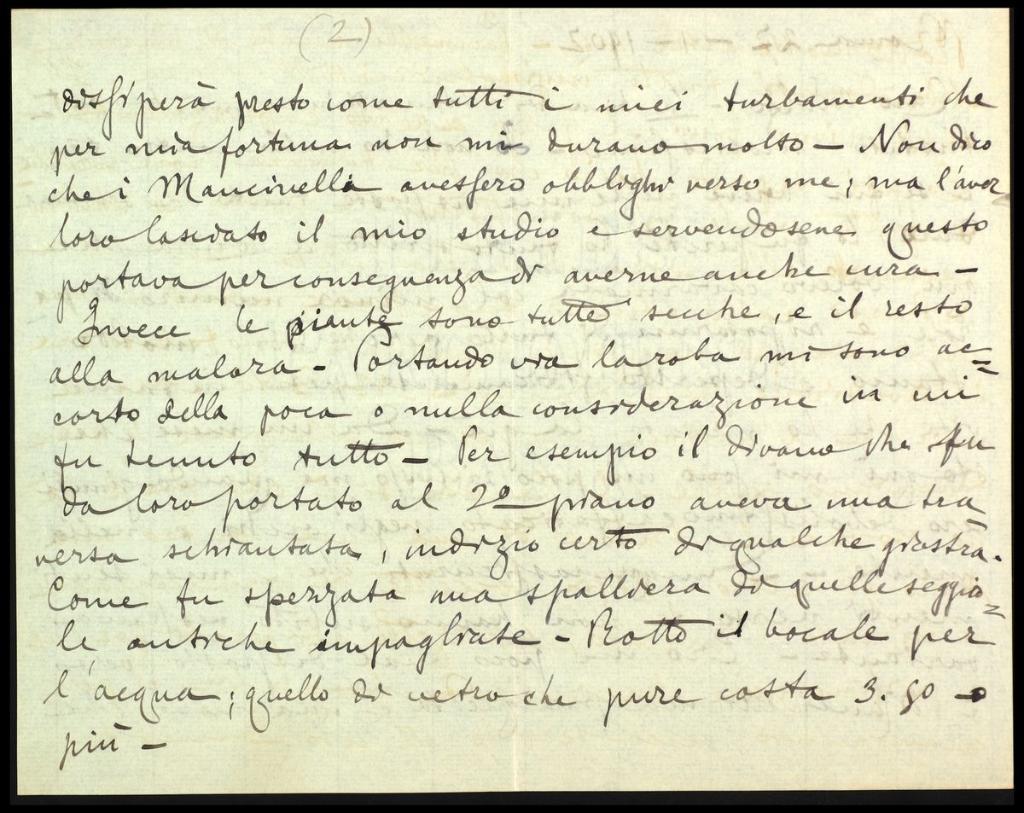 (2)
dissiperà presto come tutti i miei turbamenti che
per mia fortuna non mi durano molto – Non dico
che i Mancinelli avessero obblighi verso me; ma l'aver
loro lasciato il mio studio e servendosene questo
portava per conseguenza di averne anche cura –
Invece le piante sono tutte secche, e il resto
alla malora – Portando via la roba mi sono ac=
corto della poca o nulla considerazione in cui
fu tenuto tutto – Per esempio il divano che fu
da loro portato al 2º piano aveva una tra
versa schiantata, indizio certo di qualche giostra.
Come fu spezzata una spalliera di quelle seggio=
le, antiche impagliate – Rotto il bocale per
l'acqua; quello di vetro che pure costa 3.50 o
più –